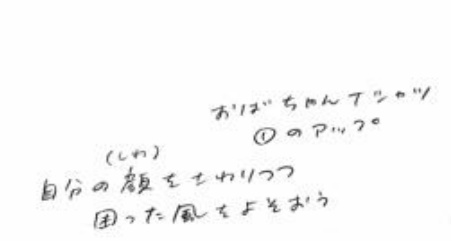 おばちゃんTシャツ
①のアップ
(しわ)
自分の顔をさわりつつ
困った風をよそおう